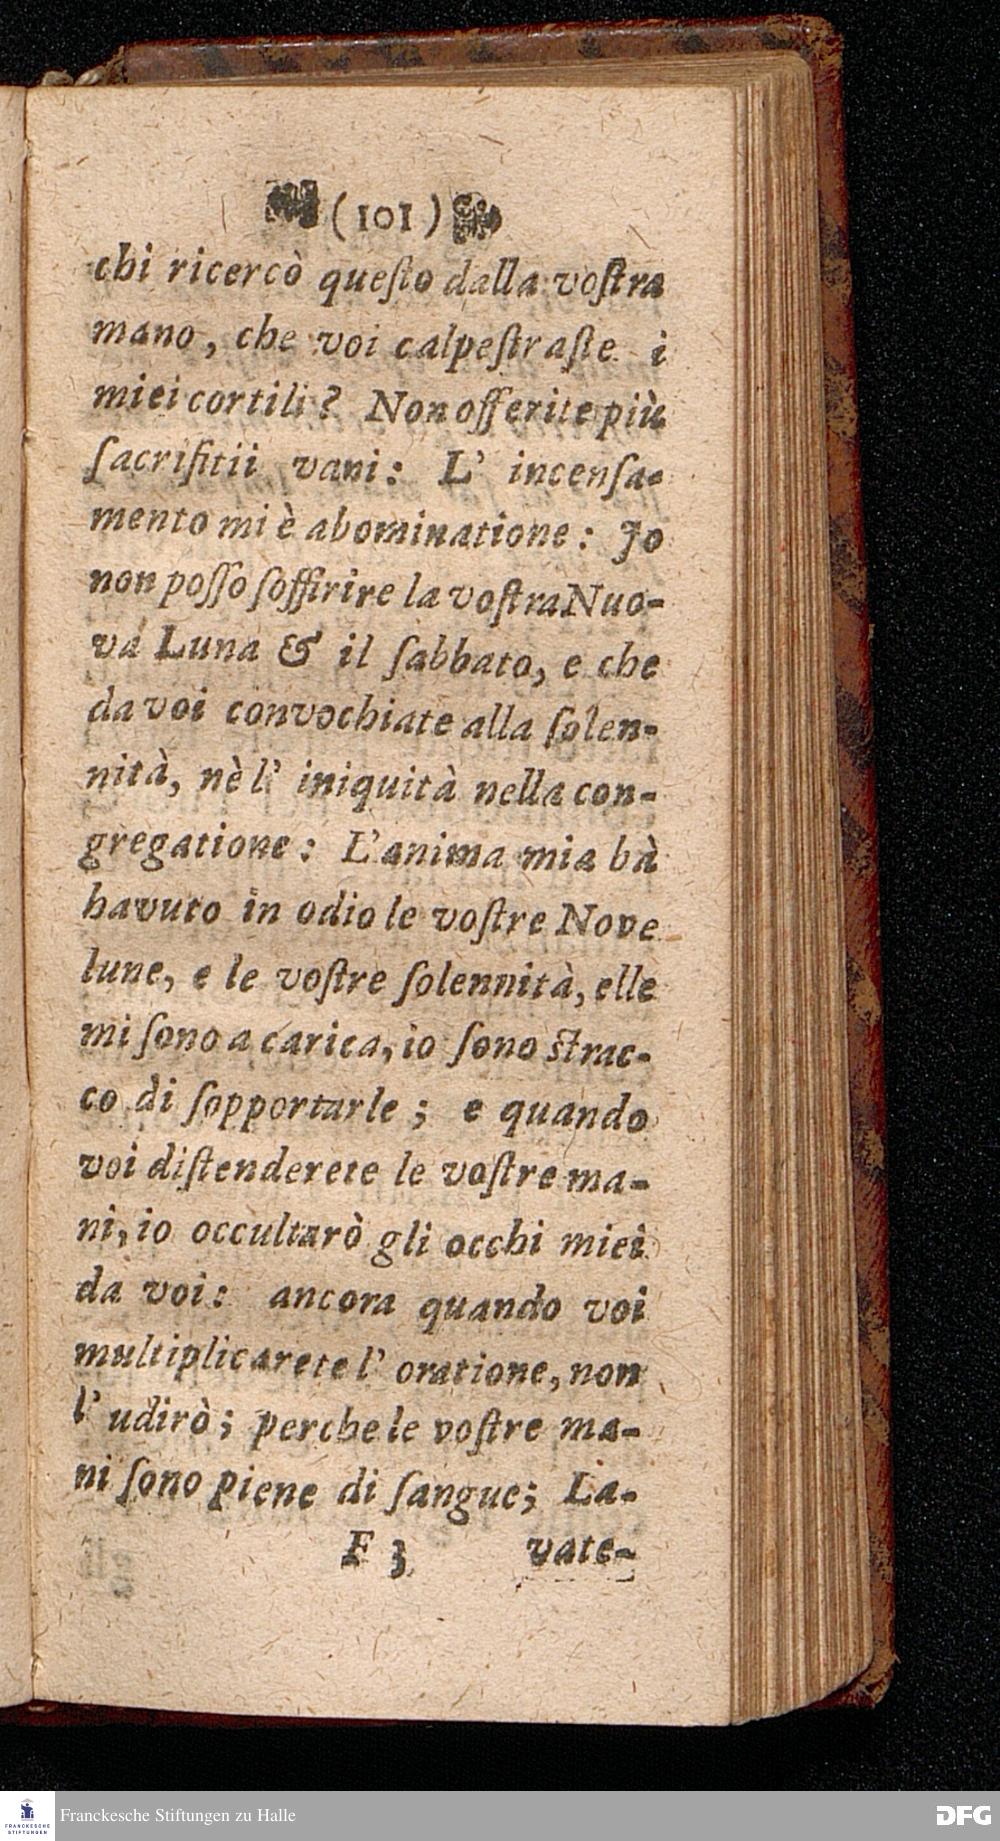 (101)
chi ricercò queſto dalla voſtra
mano, che voi calpeſtraſte i
miei cortili? Non offerite più
ſacrifitii vani: L' incenſa-
mento mi è abominatione: Jo
non poſſo ſoffrire la voſtra Nuo-
va Luna & il ſabbato, e che
da voi convochiate alla ſolen-
nità, nè l' iniquità nella con-
gregatione: L'anima mia hà
havuto in odio le voſtre Nove
lune, e le voſtre ſolennità, elle
mi ſono a carica, io ſono ſtrac-
co di ſopportarle; e quando
voi diſtenderete le voſtre ma-
ni, io occultarò gli occhi miei
da voi: ancora quando voi
multiplicarete l' oratione, non
l' udirò; perche le voſtre ma-
ni ſono piene di ſangue; La-
F 3 vate-
Franckesche Stiftungen zu Halle
FRANCKESCHE
STIFTUNGEN
DFG